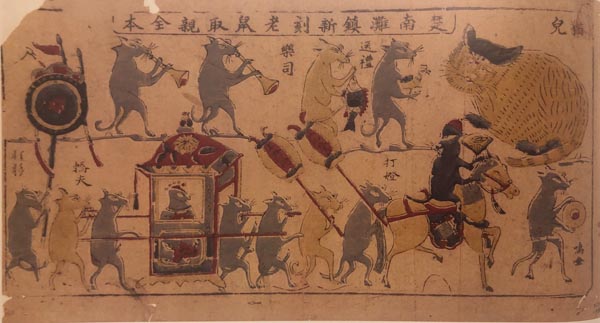 楚南灘鎮新刻老鼠取親全本
兒
送禮
樂司
打燈
轎夫